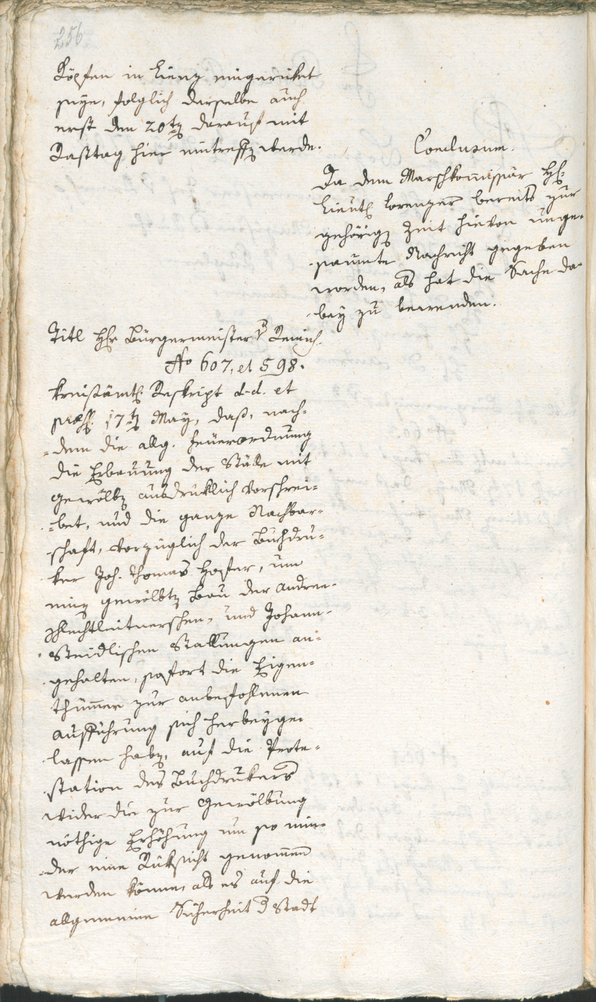 256
Köpfen in Lienz eingerücket
seye, folglich derselbe auch
erst den 20tn darauf mit
Rasttag hier eintreffn werde.
Conclusum.
Da dem Marschkommissär H:
Lieut: Lorenzer bereits zur
gehörign Zeit hievon unge-
saumte Nachricht gegeben
worden, als hat die Sache da-
bey zu bewenden.
Titl Hr Bürgermeister v
No 607. et 598.
Kreisämtl: Reskript d.d. et
praes: 17tn May, daß, nach-
dem die allg. Feuerordnung
die Erbauung der Ställe mit
Gewölbn ausdrücklich vorschrei-
bet, und die ganze Nachbar-
schaft, vorzüglich der Buchdru-
ker Joh. Thomas Hopfer, um
einen gewölbtn Bau der Andree
Schlechtleitnerschen, und Johann
Steidlischen Stallungen an-
gehalten, sofort die Eigen-
thümmer zur anbefohlenen
Ausführung sich herbeyge-
lassen habn, auf die Prote-
station des Buchdrukers
wider die zur Gewölbung
nöthige Erhöhung um so min-
der eine Rüksicht genommen
werden könne, als es auf die
allgemeine Sicherheit d Stadt